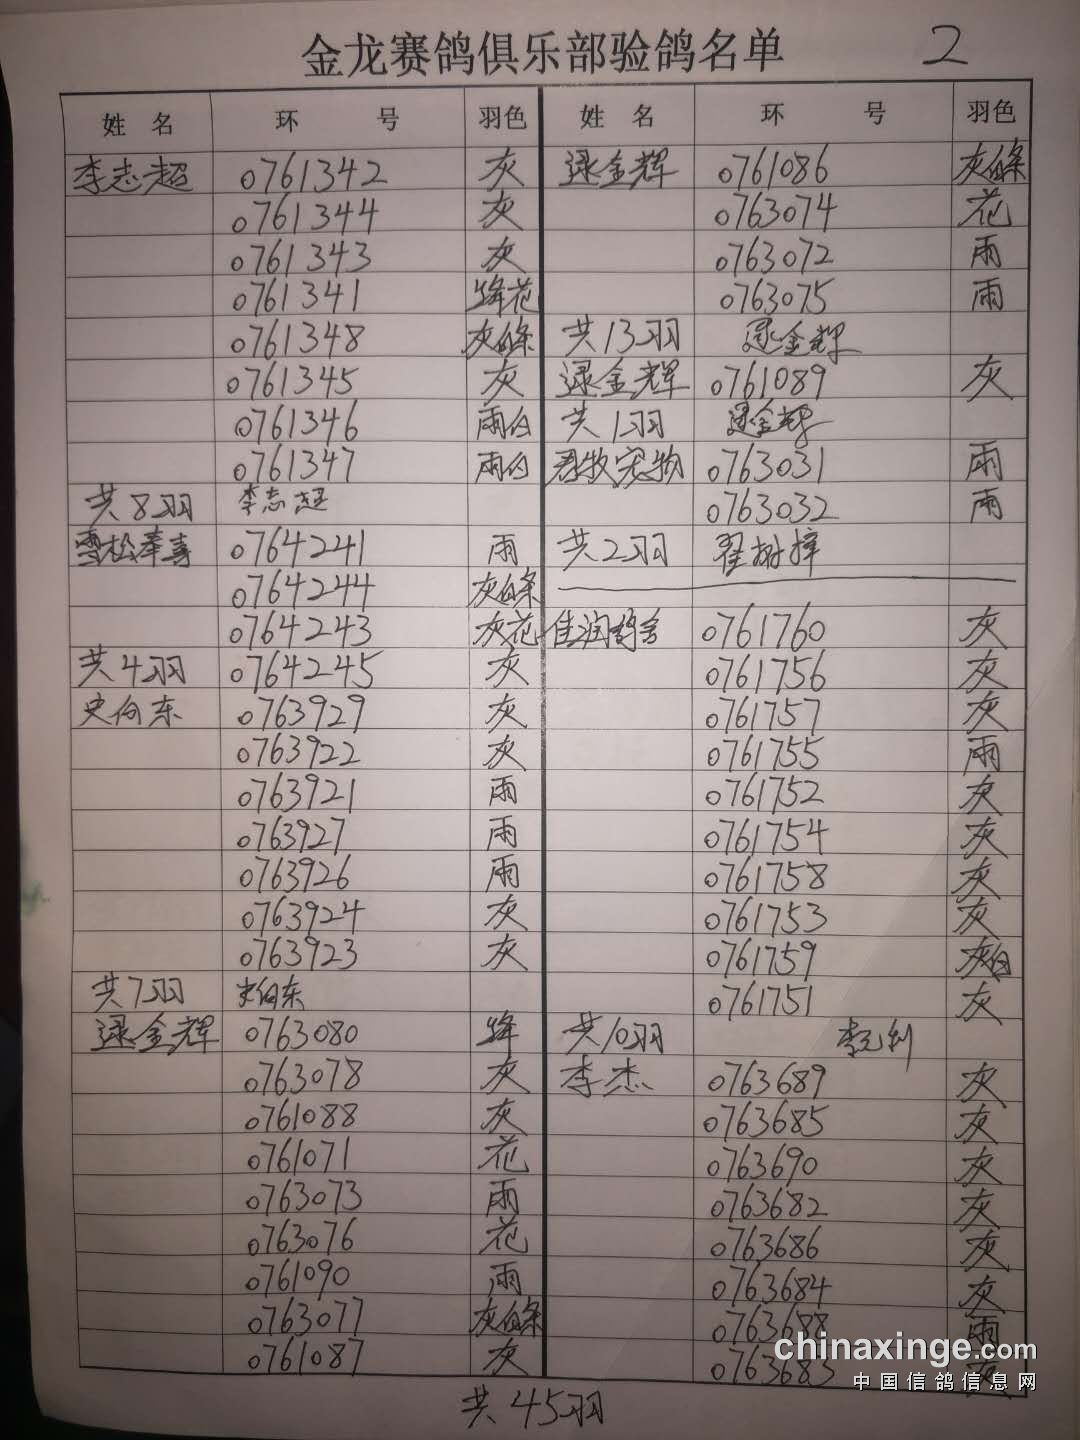 金龙赛鸽俱乐部验鸽名单 2
姓名 环号 羽色 姓名 环号 羽色
李志超 0761342 灰
0761344 灰
0761343 灰
0761341 绛花
0761348 灰白条
0761345 灰
0761346 雨白
0761347 雨白
共8羽 李志超
雪松奉喜 0764241 雨
0764244 灰白条
0764243 灰花
共4羽 0764245 灰
史向东 0763929 灰
0763922 灰
0763921 雨
0763927 雨
0763926 雨
0763924 灰
0763923 灰
共7羽 史向东
逯金辉 0763080 绛
0763078 灰
0761088 灰
0761071 花
0763073 雨
0763076 花
0761090 雨
0763077 灰白条
0761087 灰
逯金辉 0761086 灰白條
0763074 花
0763072 雨
0763075 雨
共13羽 逯金辉
逯金辉 0761089 灰
共1羽 逯金辉
君牧宠物 0763031 雨
0763032 雨
共2羽 翟树梓
佳润鸽舍 0761760 灰
0761756 灰
0761757 灰
0761755 雨
0761752 灰
0761754 灰
0761758 灰
0761753 灰
0761759 灰白
0761751 灰
共10羽
李杰 0763689 灰
0763685 灰
0763690 灰
0763682 灰
0763686 灰
0763684 灰
0763688 雨
0763683 灰
共45羽
chinaxinge.com
中国信鸽信息网